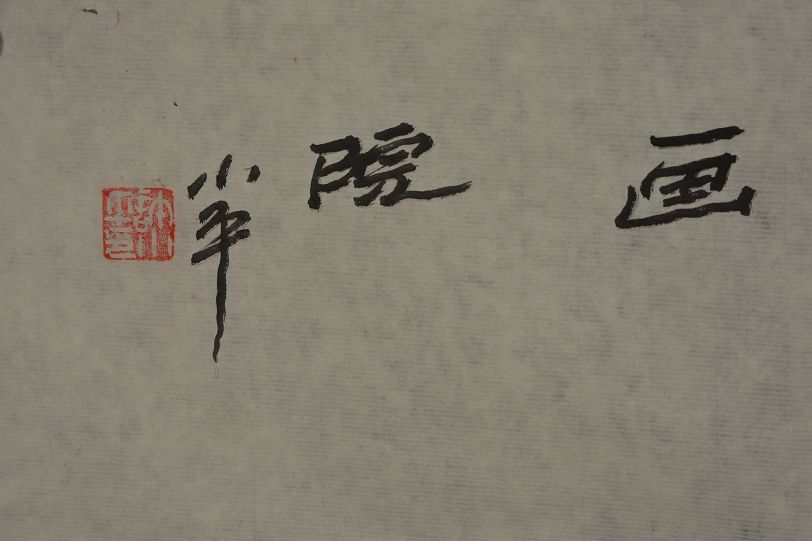 画院
小平